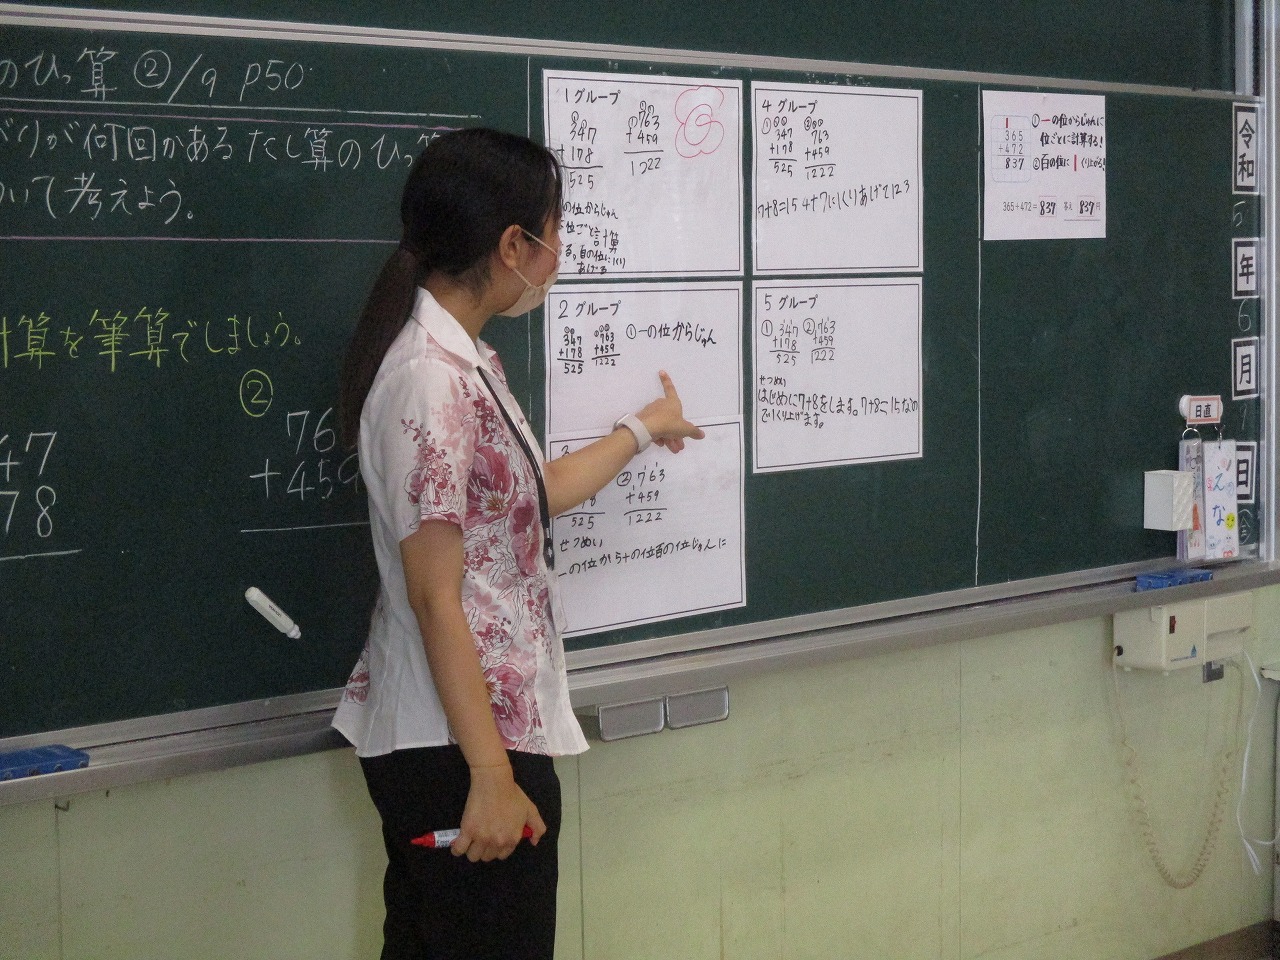 のひっ算 ②/9 P50
がりが何回かあるたし算のひっ算
ついて考えよう。
計算を筆算でしましょう。
②
47
78
76
+459
1グループ
347
+178
525
763
+459
1222
の位からじゅん
位ごと計算
る。百の位に
あげる
2グループ
347
+178
525
763
+459
1222
①一の位からじゅん
② 763
+459
1222
525
せつめい
一の位から十の位百の位じゅんに
4グループ
① 347
+178
525
763
+459
1222
7+8=15 4+7に1くりあげて123
5グループ
① 347
+178
525
② 763
+459
1222
せつめい
はじめに7+8をします。7+8=15なの
で1くり上げます。
1
365
+472
837
①一の位からじゅんに
位ごとに計算する!
②百の位に1くり上がる!
365+472=837 答え 837円
令和
5
年
6
月
日
日直